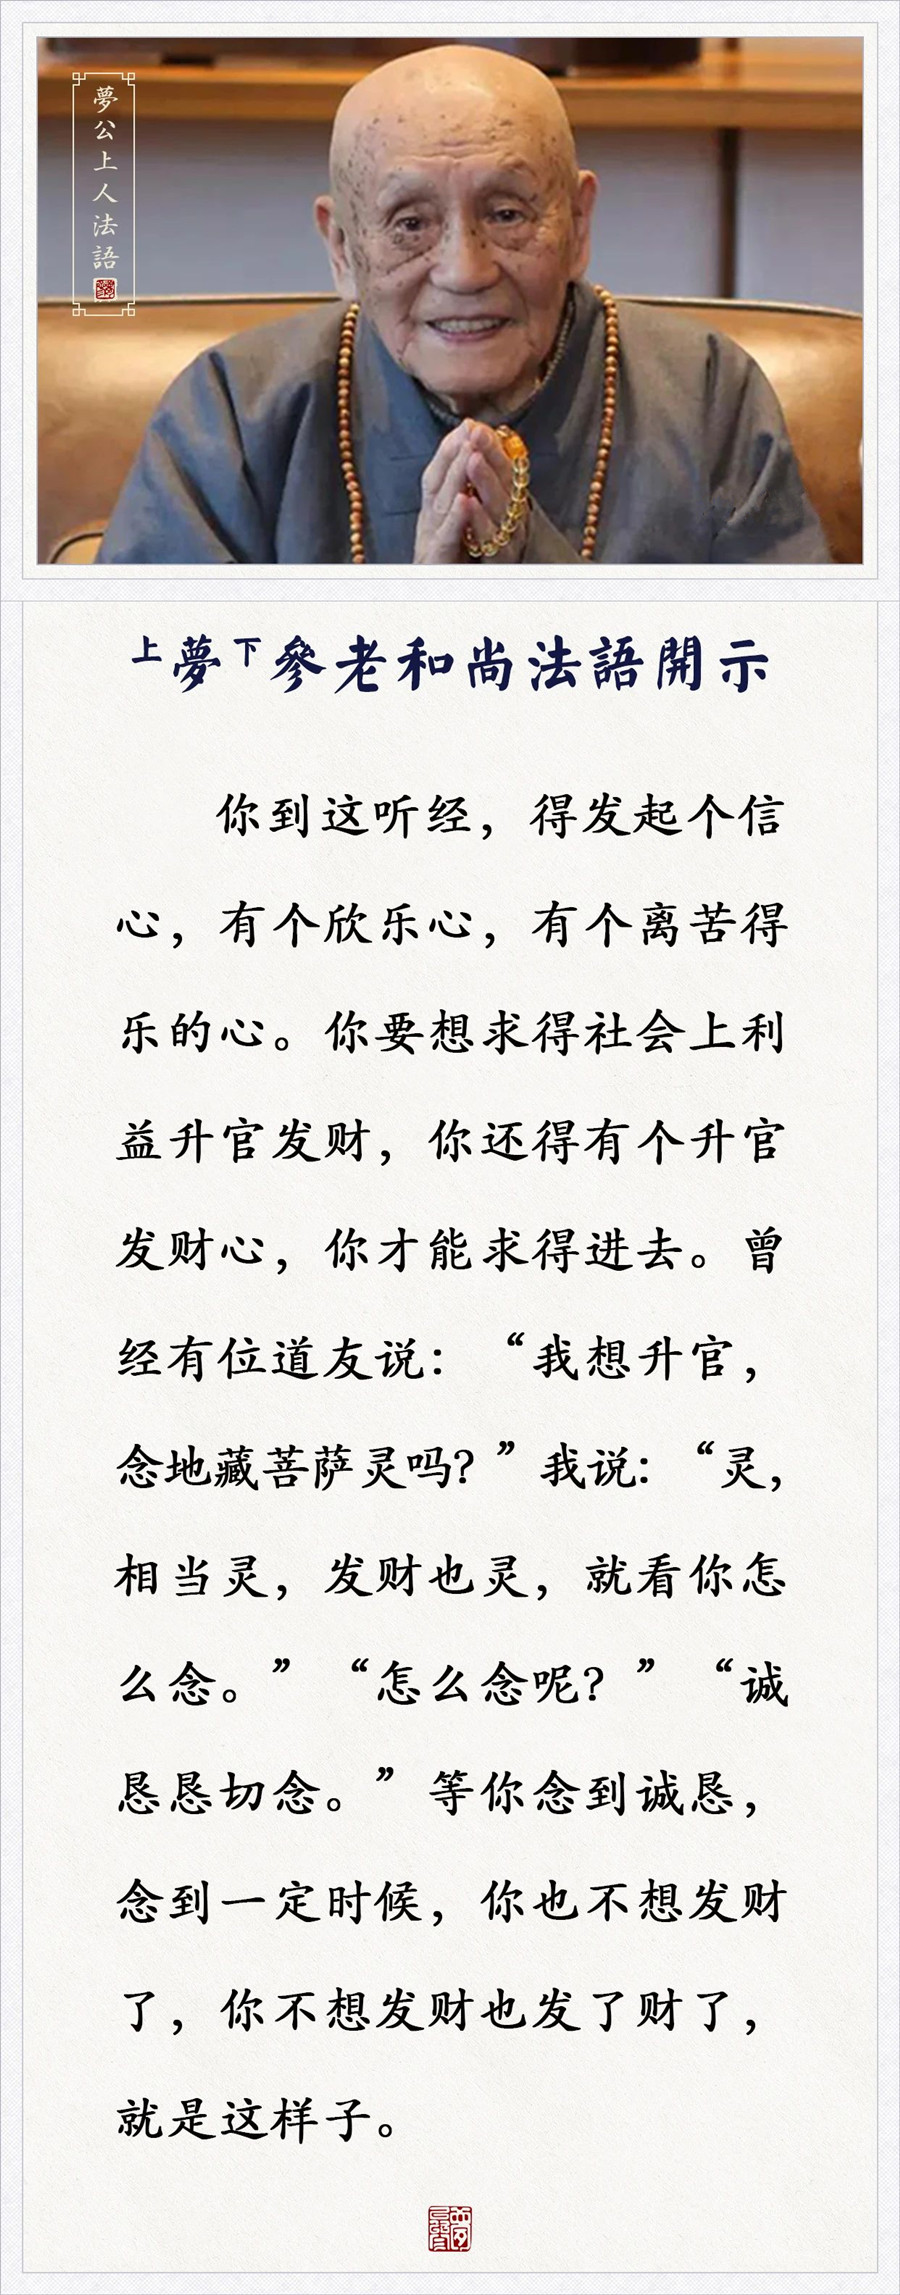 夢公上人法語
上夢下參老和尚法語開示
你到这听经，得发起个信
心，有个欣乐心，有个离苦得
乐的心。你要想求得社会上利
益升官发财，你还得有个升官
发财心，你才能求得进去。曾
经有位道友说：“我想升官，
念地藏菩萨灵吗？”我说：“灵，
相当灵，发财也灵，就看你怎
么念。”“怎么念呢？”“诚
恳恳切念。”等你念到诚恳，
念到一定时候，你也不想发财
了，你不想发财也发了财了，
就是这样子。